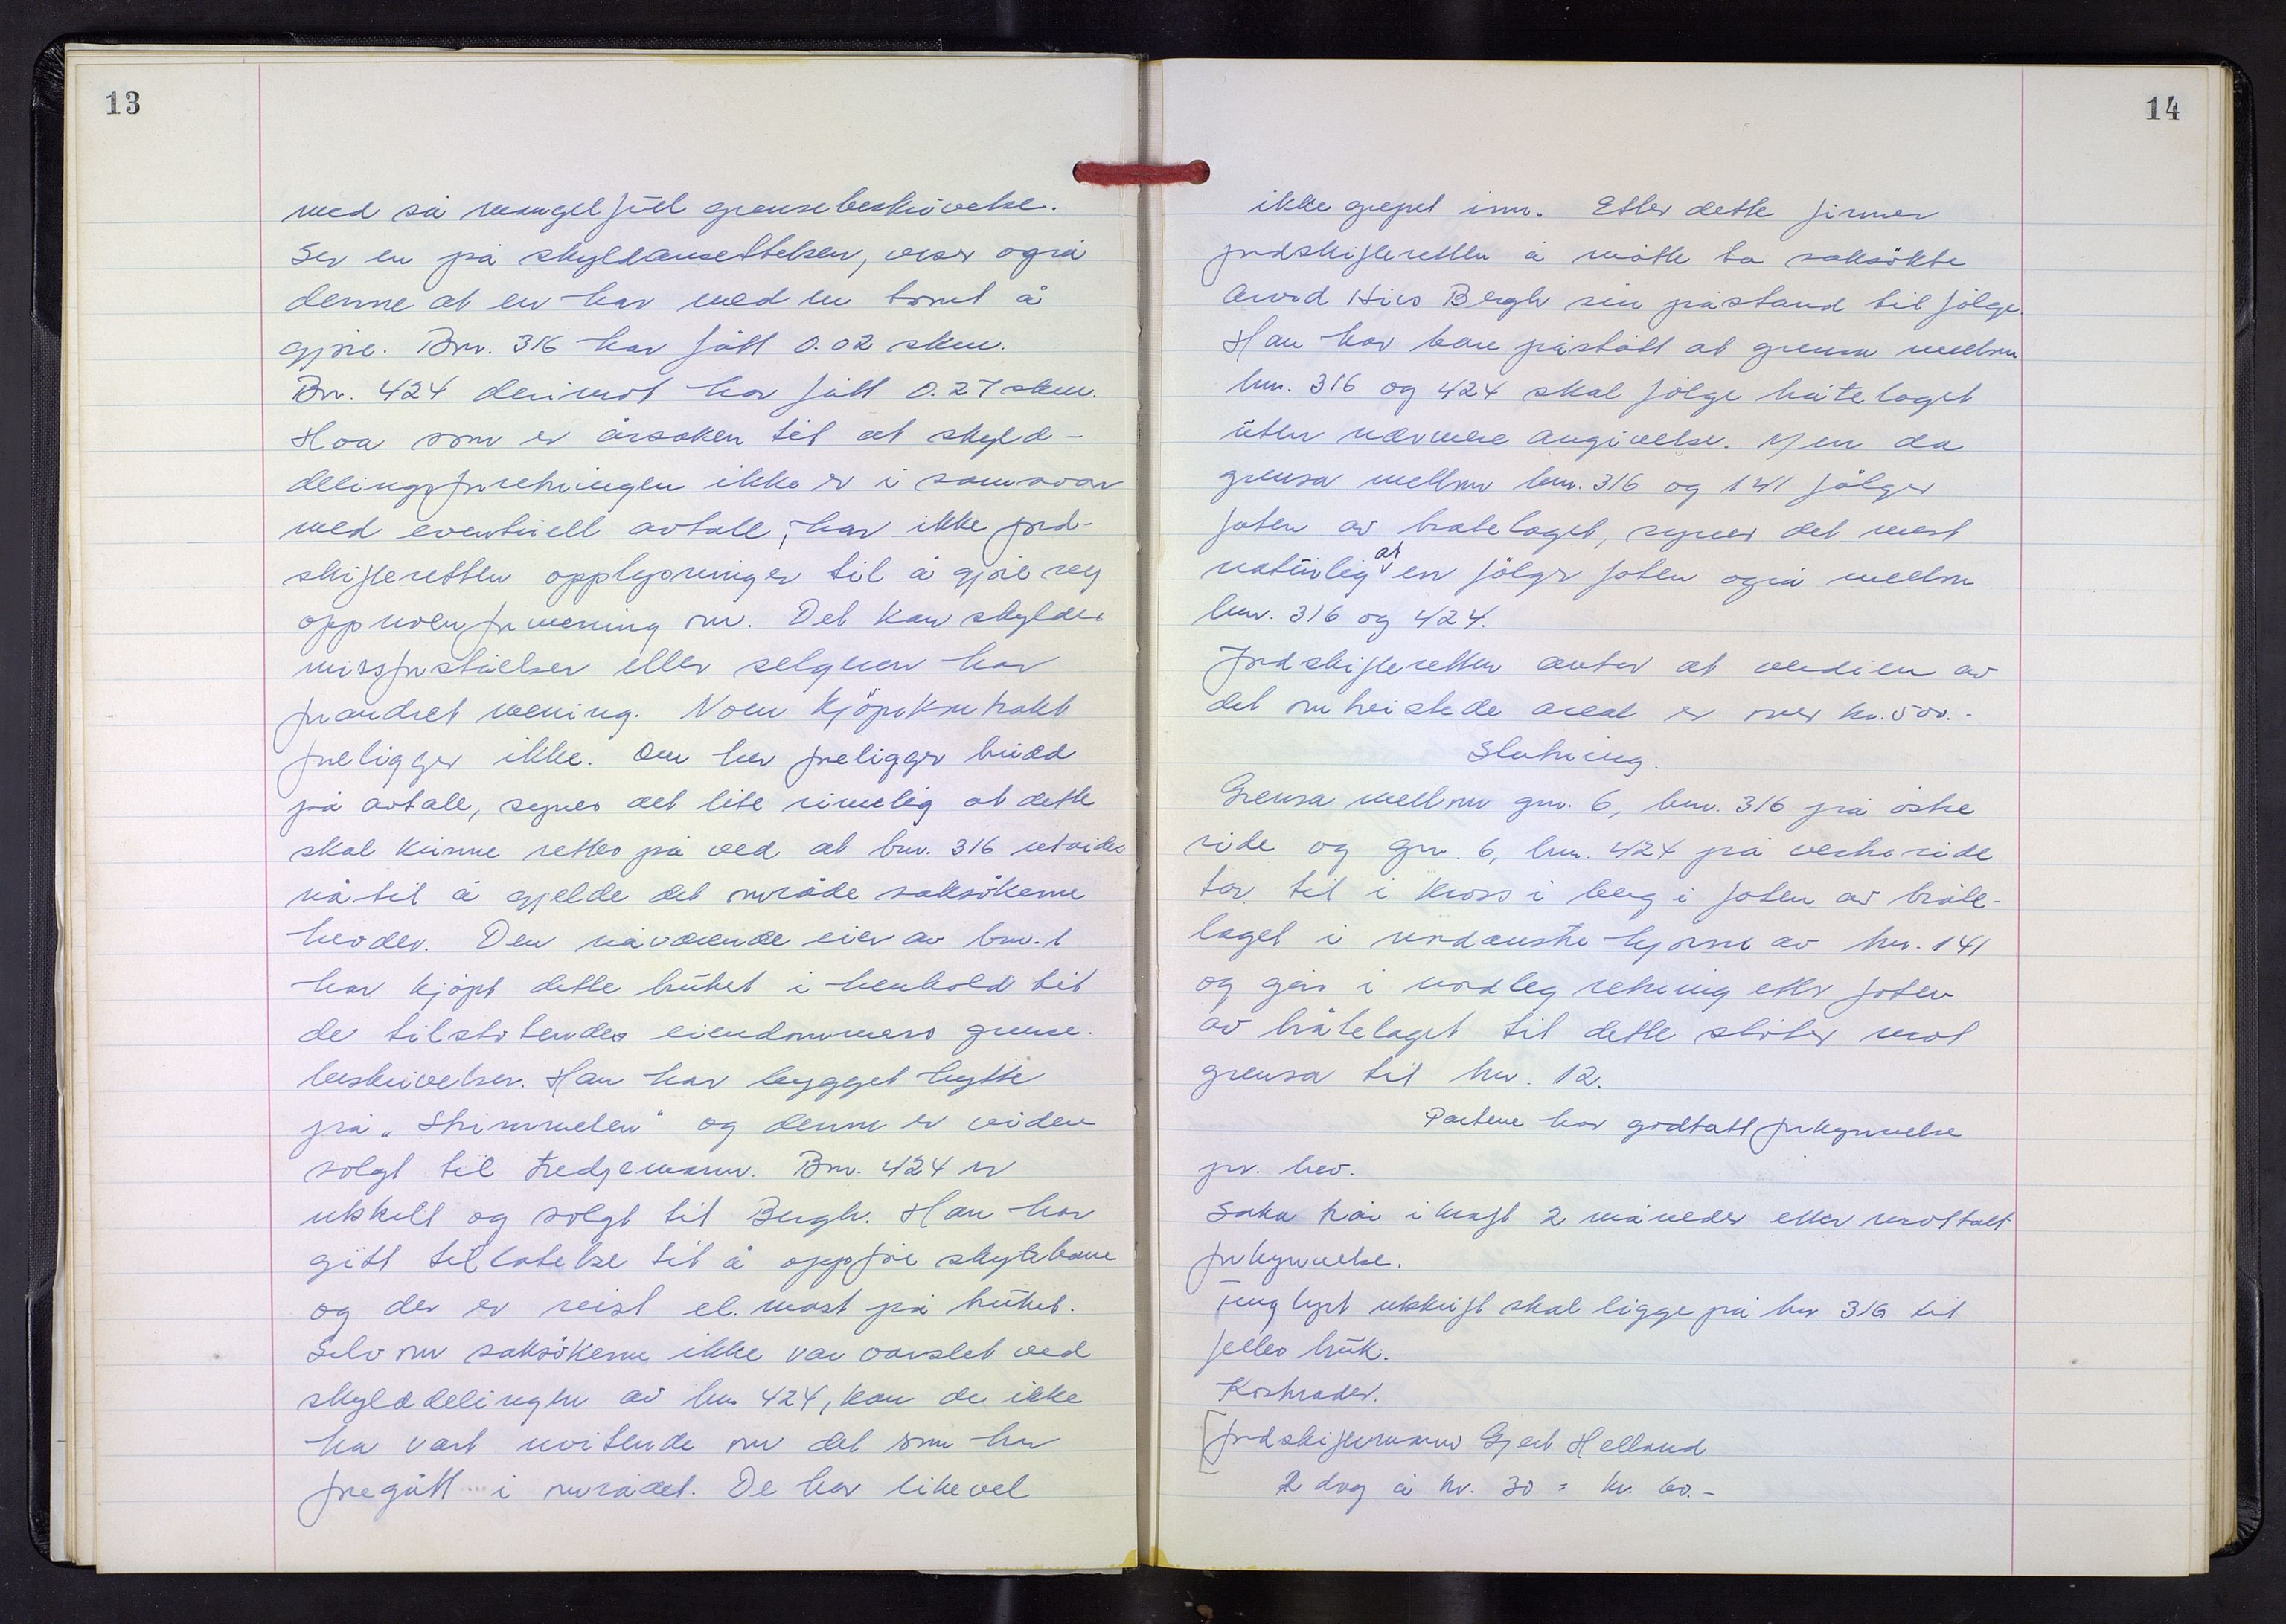 13
med så mangelfull grensebeskrivelse.
Ser en på skyldansettelsen, viser også
denne at en har med en tomt å
gjøre. Bnr. 316 har fått 0.02 skm.
Bnr. 424 derimot har fått 0.27 skm.
Hva som er årsaken til at skyld-
delingsforretningen ikke er i samsvar
med eventuell avtale, har ikke jord-
skifteretten opplysninger til å gjøre seg
opp noen formening om. Det kan skyldes
missforståelser eller selgeren har
forandret mening. Noen kjøpekontrakt
foreligger ikke. Om her foreligger brudd
på avtale, synes det lite rimelig at dette
skal kunne rettes på ved at bnr. 316 utvides
nå til å gjelde det område saksøkerne
hevder. Den nåværende eier av bnr. 1
har kjøpt dette bruket i henhold til
de tilstøtendes eiendommers grense-
beskrivelser. Han har bygget hytte
på "Skrimmelen" og denne er siden
solgt til tredjemann. Bnr. 424 er
utskilt og solgt til Bergh. Han har
gitt tillatelse til å oppføre skytebane
og der er reist el. mast på bruket.
Selv om saksøkerne ikke var varslet ved
skylddelingen av bnr 424, kan de ikke
ha vært uvitende om det som har
foregått i området. De har likevel
14
ikke grepet inn. Etter dette finner
jordskifteretten å måtte ta saksøkte
Arvid Bergh sin påstand til følge.
Han har bare påstått at grensa mellom
bnr. 316 og 424 skal følge bråtelaget
uten nærmere angivelse. Men da
grensa mellom bnr. 316 og 141 følger
foten av bråtelaget, synes det mest
naturlig at en følger foten også mellom
bnr. 316 og 424.
Jordskifteretten antar at verdien av
det omtvistede areal er over kr. 500.-
Slutning.
Grensa mellom gnr. 6, bnr. 316 på østre
side og gnr. 6, bnr. 424 på vestre side
tar til i kross i berg i foten av bråte-
laget i nordaustre hjørne av bnr. 141
og går i nordleg retning etter foten
av bråtelaget til dette støter mot
grensa til bnr. 12.
Partene har godtatt forkynnelse
pr. brev.
Saka trår i kraft 2 måneder etter mottatt
forkynnelse.
Tinglyst utskrift skal ligge på bnr 316 til
felles bruk.
Kostnader.
Jordskiftemann Gjert Helland
2 dag à kr. 30 = kr. 60.-